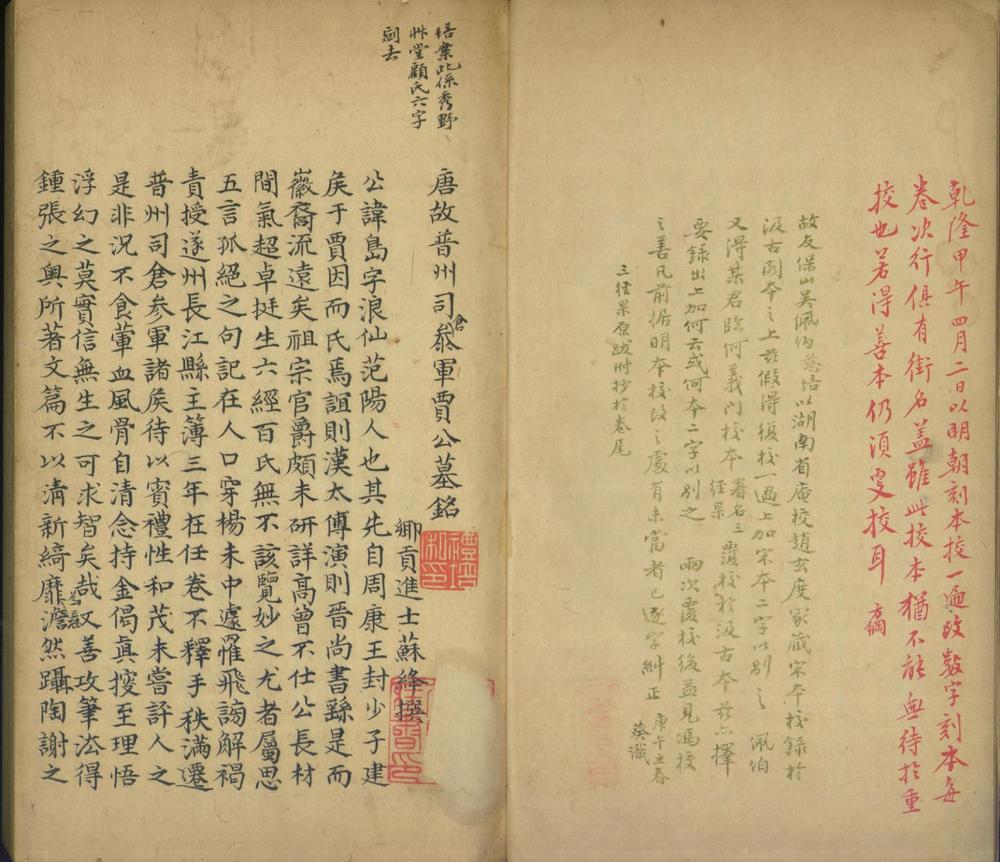 乾隆甲午四月二日以明朝刻本挍一遍改數字刻本每
卷次行俱有銜名蓋雖此挍本猶不能無待於重
挍也若得善本仍須叓挍耳
故友保山吳佩伯慈培以湖南省庵校趙玄度家藏宋本校錄於
汲古閣本之上茲假得復校一過上加宋本二字以別之 佩伯
又得某君臨何義門校本署名三徑果覆校於汲古本茲亦擇
要錄出上加何云或何本二字以別之 兩次覆校後益見馮校
之善凡前据明本校改之處有未當者已逐字糾正 庚午立春
葵識
三徑果原跋附抄於卷尾
培案此係秀野
艸堂顧氏六字
剜去
唐故普州司倉叅軍賈公墓銘
鄉貢進士蘇絳撰
公諱島字浪仙范陽人也其先自周康王封少子建
矦于賈因而氏焉誼則漢太傅演則晉尚書繇是而
徽裔流遠矣祖宗官爵頗未研詳高曾不仕公長材
間氣超卓挺生六經百氏無不該覽妙之尤者屬思
五言孤絕之句記在人口穿楊未中遽罹飛謗解褐
責授遂州長江縣主簿三年在任卷不釋手秩滿遷
普州司倉參軍諸矦待以賓禮性和茂未嘗評人之
是非況不食葷血風骨自清念持金偈真搜至理悟
浮幻之莫實信無生之可求智矣哉又善攻筆法得
鍾張之奧所著文篇不以清新綺靡澹然躡陶謝之